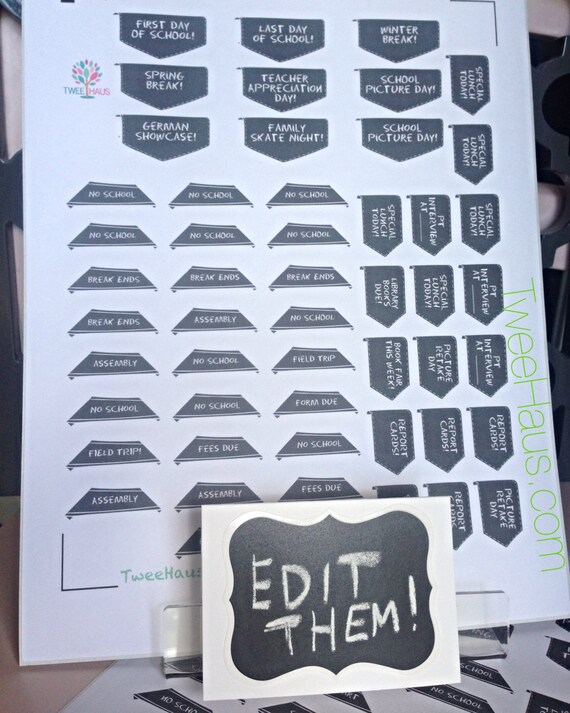 FIRST DAY
OF SCHOOL!
LAST DAY
OF SCHOOL!
WINTER
BREAK!
TWEE HAUS
SPRING
BREAK!
TEACHER
APPRECIATION
DAY!
SCHOOL
PICTURE DAY!
SPECIAL
LUNCH
TODAY!
GERMAN
SHOWCASE!
FAMILY
SKATE NIGHT!
SCHOOL
PICTURE DAY!
SPECIAL
LUNCH
TODAY!
NO SCHOOL
NO SCHOOL
NO SCHOOL
SPECIAL
LUNCH
TODAY!
PT
INTERVIEW
AT
SPECIAL
LUNCH
TODAY!
NO SCHOOL
NO SCHOOL
NO SCHOOL
BREAK ENDS
BREAK ENDS
BREAK ENDS
LIBRARY
BOOKS
DUE!
SPECIAL
LUNCH
TODAY!
PT
INTERVIEW
AT
BREAK ENDS
ASSEMBLY
NO SCHOOL
ASSEMBLY
NO SCHOOL
FIELD TRIP
BOOK FAIR
THIS WEEK!
PICTURE
RETAKE
DAY
PT
INTERVIEW
AT
NO SCHOOL
NO SCHOOL
FORM DUE
FIELD TRIP!
FEES DUE
NO SCHOOL
REPORT
CARDS!
REPORT
CARDS!
REPORT
CARDS!
ASSEMBLY
ASSEMBLY
FEES DUE
REPORT
PICTURE
RETAKE
DAY
TweeHaus
TweeHaus.com
EDIT
THEM!
NO SCHOOL
NO SCHOOL